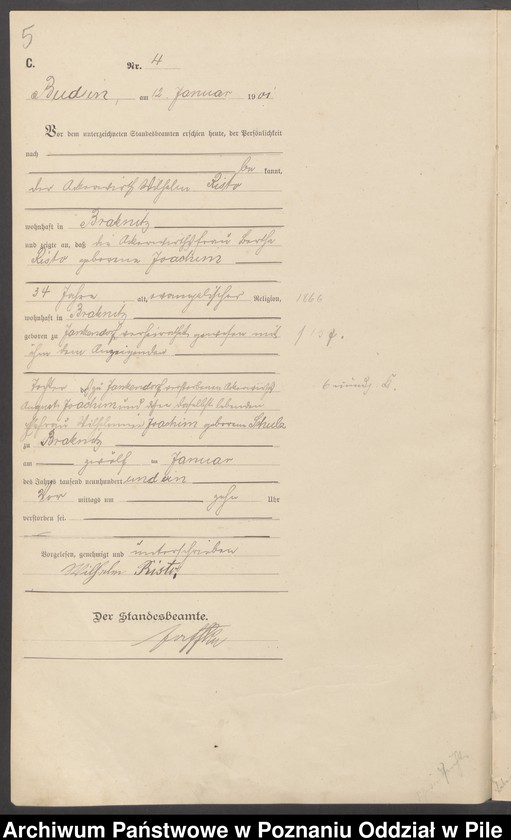 5
C.
Nr. 4
Budsin, am 12 Januar 1901
Vor dem unterzeichneten Standesbeamten erschien heute, der Persönlichkeit
nach
be kannt,
der Akerwirth Wilhelm Risto
wohnhaft in Braknitz
und zeigte an, daß die Akerwirthsfrau Bertha
Risto geborene Joachim
34 Jahre alt, evangelischer Religion,
wohnhaft in Braknitz
geboren zu Jankendorf, verheirathet gewesen mit
ihm dem Anzeigenden
Tochter zu Jankendorf verstorbenen Akerwirth
August Joachim und daselbst lebenden
Ehefrau Wilhelmine Joachim geborene Schulz
zu Braknitz
am zwölf ten Januar
des Jahres tausend neunhundert und ein
Vor mittags um zehn Uhr
verstorben sei.
Vorgelesen, genehmigt und unterschrieben
Wilhelm Risto,
Der Standesbeamte.
1866
6
Archiwum Państwowe w Poznaniu Oddział w Pile